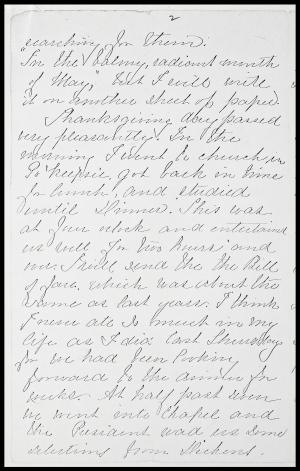 2
searching for them.
"In the balmy, radiant month
of May," but I will write
it on another sheet of paper.
Thanksgiving day passed
very pleasantly. In the
morning I went to church in
Po'keepsie, got back in time
for lunch, and studied
until Dinner. This was
at four o'clock and entertained
us well for two hours and
I will send the the Bill
of fare, which was about the
same as last years. I think
I never ate so much in my
life as I did last Thursday
for we had been looking
forward to the dinner for
weeks. At half past seven
we went into chapel and
the President read us some
selections from Dickens.